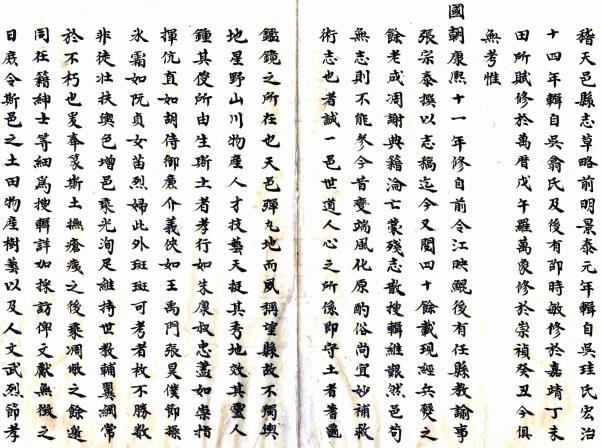 稽天邑縣志草略前明景泰元年輯自吳珪氏宏治
十四年輯自吳翁氏及後有邵時敏修於嘉靖丁未
田所賦修於萬曆戊午羅萬象修於崇禎癸丑今俱
無考惟
國朝康熙十一年修自前令江映鯤後有任縣教諭事
張宗泰撰以志稿迄今又閱四十餘載現經兵燹之
餘老成凋謝典籍淪亡蒙殘志散搜輯維艱然邑苟
無志則不能參今昔變端風化原酌俗尚宜妙補救
術志也者誠一邑世道人心之所係即守土者蓍龜
鑑鏡之所在也天邑彈丸地而夙稱望縣故不獨輿
地星野山川物產人才技藝天挺其秀地效其靈人
鍾其俊所由生斯土者孝行如朱康叔忠藎如崇指
揮伉直如胡侍御廉介義俠如王禹門張昊僕節操
冰霜如阮貞女苗烈婦此外斑斑可考者枚不勝數
非徒壯扶輿色增邑乘光洵足維持世教輔翼綱常
於不朽也爰奉篆斯土撫瘡痍之後乘凋敝之餘邀
同在籍紳士等細為搜輯詳加採訪俾文獻無徵之
日庶令斯邑之土田物產樹藝以及人文武烈節孝